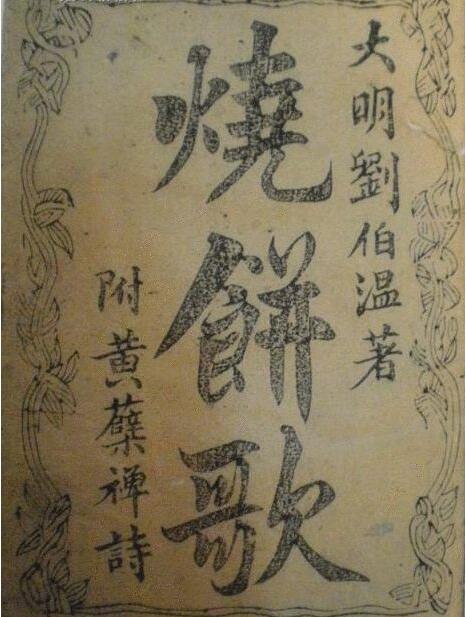 大明劉伯温著
燒餅歌
附黃蘗禪詩